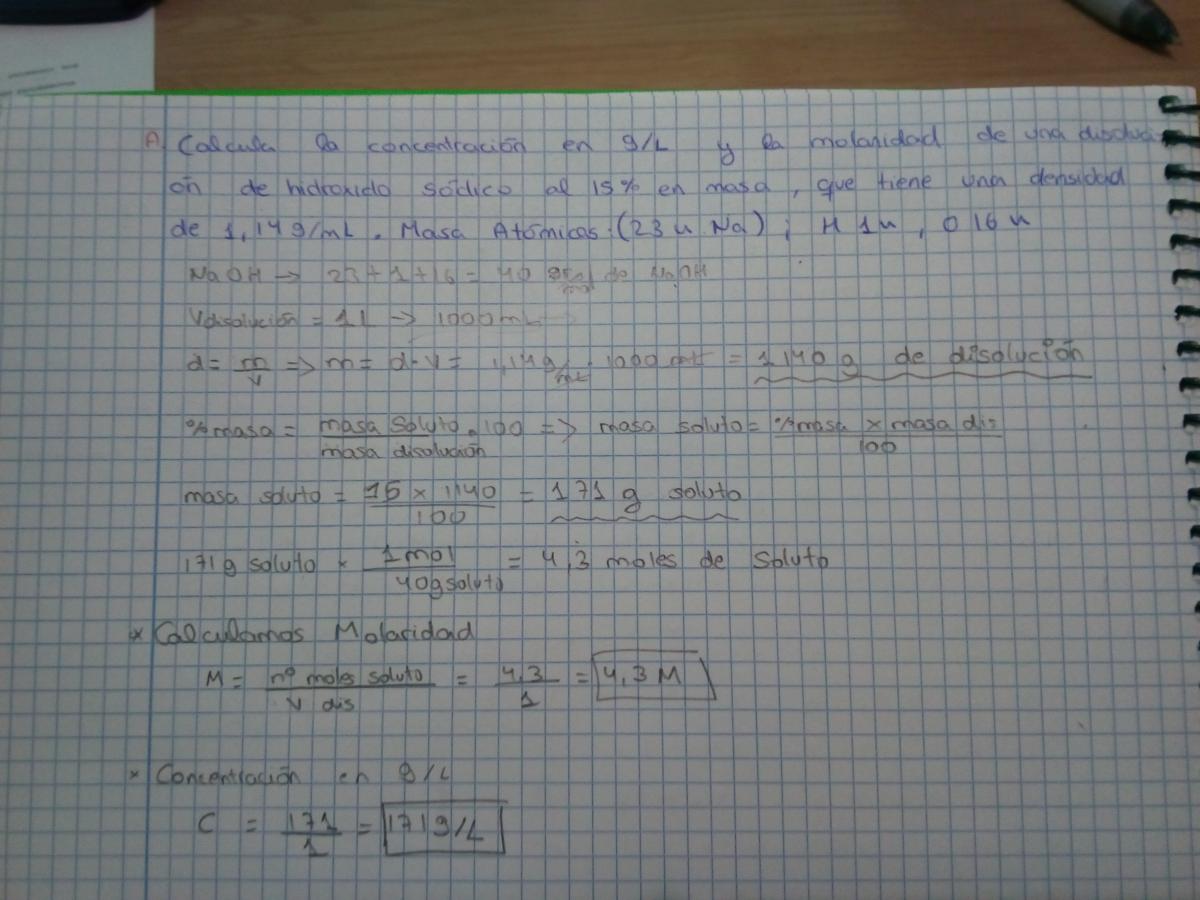 A. Calcula la concentración en g/L y la molaridad de una disoluci
ón de hidroxido sódico al 15% en masa, que tiene una densidad
de 1,14g/mL. Masa Atómicas: (23u Na); H 1u, O 16u
NaOH → 23+1+16 = 40 de NaOH
Vdisolución = 1L → 1000mL
d = m/v => m = d·v = 1,14g/mL · 1000 mL = 1140 g de disolución
%masa = masa soluto/masa disolución · 100 => masa soluto = %masa x masa dis/100
masa soluto = 15 x 1140/100 = 171 g soluto
171g soluto x 1mol/40g soluto = 4,3 moles de soluto
* Calculamos Molaridad
M = nº moles soluto/v dis = 4,3/1 = 4,3 M
* Concentración en g/L
C = 171/1 = 171g/L